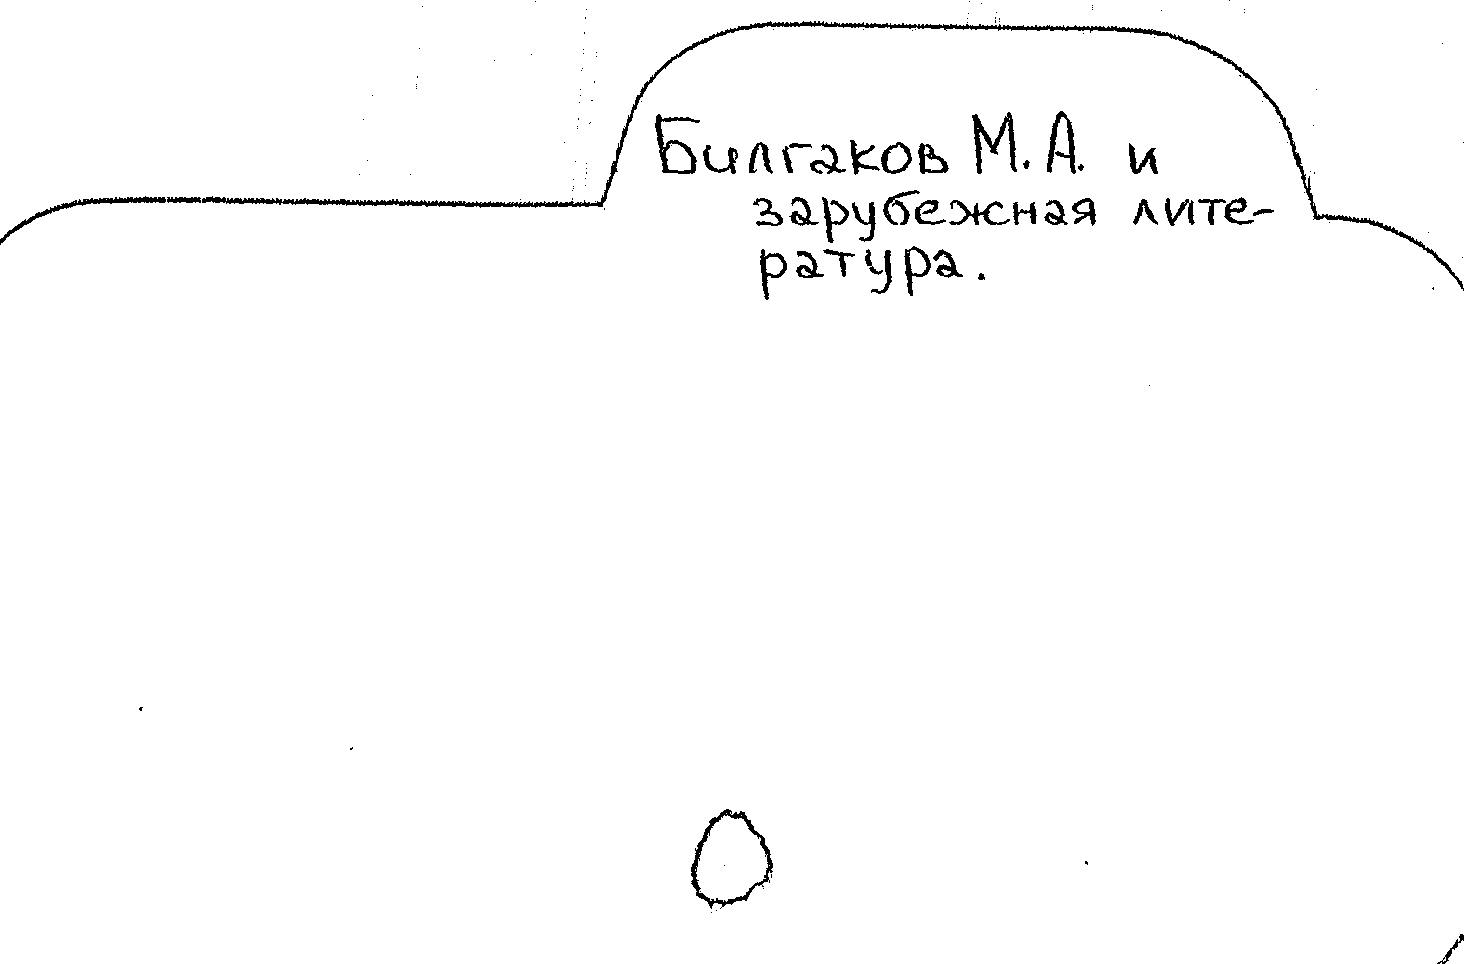 Билгаков М.А. и
зарубежная лите-
ратура.